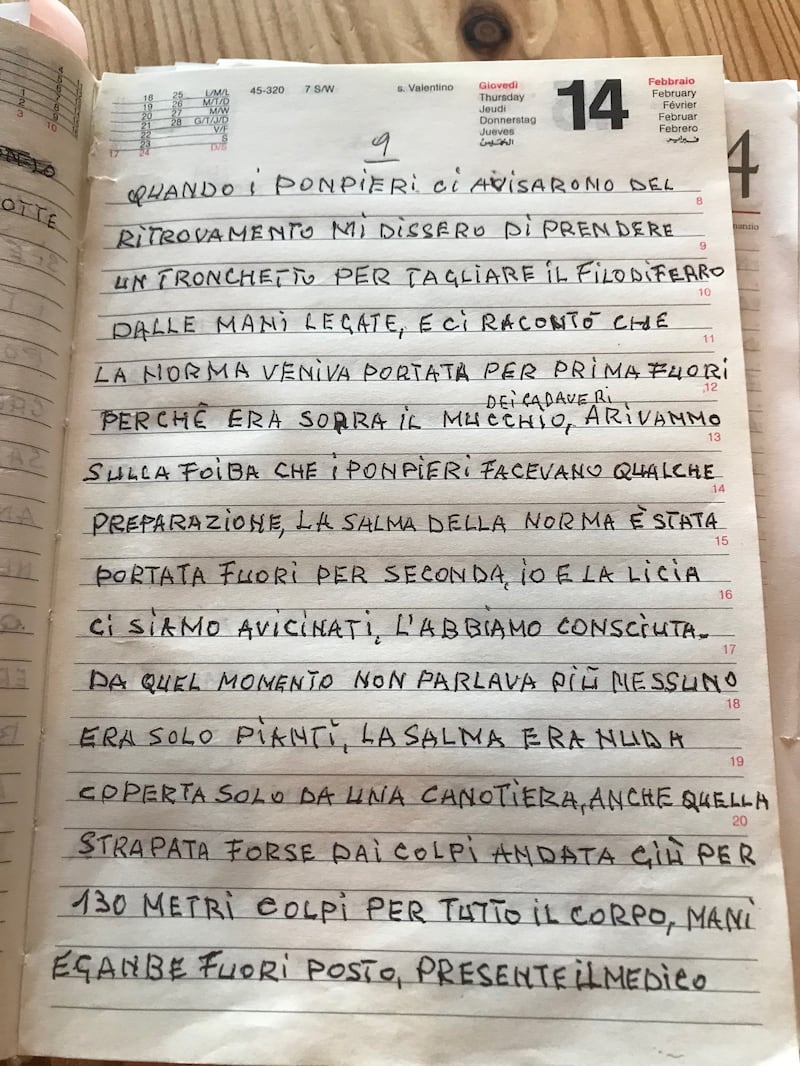 18 25 L/M/L 45-320 7 S/W s. Valentino Giovedì 14 Febbraio
19 26 M/T/D Thursday February
20 27 M/W Jeudi Février
21 28 G/T/J/D Donnerstag Februar
22 V/F Jueves Febrero
23 S
17 24 D/S
9
QUANDO i PONPiERi Ci AViSARONO DEL
8
RiTROVAMENTO Mi DiSSERO Di PRENDERE
9
UN TRONCHETTO PER TAGLiARE iL FiLO DiFERRO
10
DALLE MANi LEGATE, E Ci RACONTÒ CHE
11
LA NORMA VENiVA PORTATA PER PRiMA FUORi
12
DEi CADAVERi
PERCHÊ ERA SOPRA iL MUCCHiO, ARiVAMMO
13
SULLA FOiBA CHE i PONPiERi FACEVANO QUALCHE
14
PREPARAZiONE, LA SALMA DELLA NORMA È STATA
15
PORTATA FUORi PER SECONDA, iO E LA LiCiA
16
Ci SiAMO AViCiNATi, L'ABBiAMO CONSCiUTA.
17
DA QUEL MOMENTO NON PARLAVA PiÙ NESSUNO
18
ERA SOLO PiANTi, LA SALMA ERA NUDA
19
COPERTA SOLO DA UNA CANOTiERA, ANCHE QUELLA
20
STRAPATA FORSE DAi COLPi ANDATA GiÙ PER
130 METRi COLPi PER TUTTO iL CORPO, MANi
E GANBE FUORi POSTO, PRESENTE iL MEDiCO